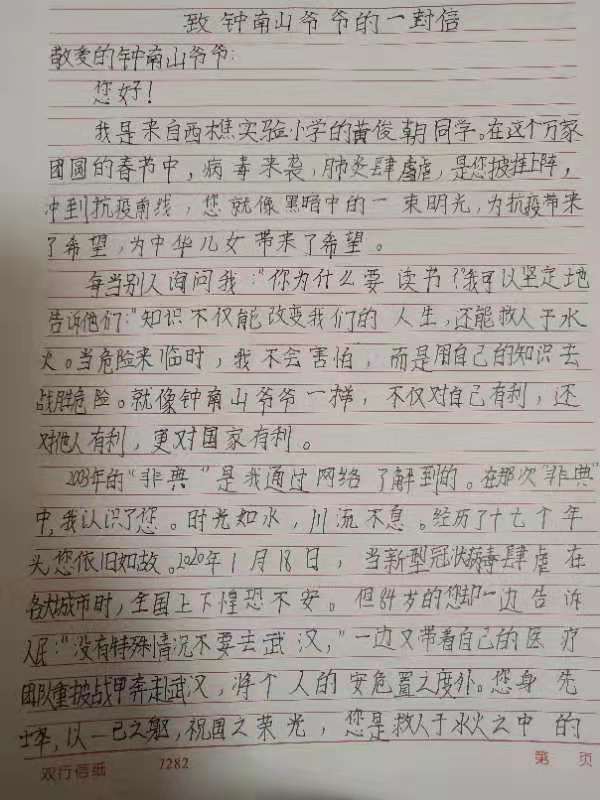 致钟南山爷爷的一封信
敬爱的钟南山爷爷:
您好!
我是来自西樵实验小学的黄俊朝同学。在这个万家
团圆的春节中，病毒来袭，肺炎肆虐，是您披挂上阵，
冲到抗疫前线，您就像黑暗中的一束明光，为抗疫带来
了希望，为中华儿女带来了希望。
每当别人询问我:"你为什么要读书?我可以坚定地
告诉他们:"知识不仅能改变我们的人生，还能救人于水
火。当危险来临时，我不会害怕，而是用自己的知识去
战胜危险。就像钟南山爷爷一样，不仅对自己有利，还
对他人有利，更对国家有利。
2003年的"非典"是我通过网络了解到的。在那次"非典"
中，我认识了您。时光如水，川流不息。经历了十七个年
头，您依旧如故。2020年1月18日，当新型冠状病毒肆虐在
各大城市时，全国上下惶恐不安。但84岁的您却一边告诉
人民:"没有特殊情况不要去武汉，"一边又带着自己的医疗
团队重披战甲奔赴武汉，将个人的安危置之度外。您身先
士卒，以一己之躯，祝国之荣光，您是救人于水火之中的
双行信纸 7282 第 页